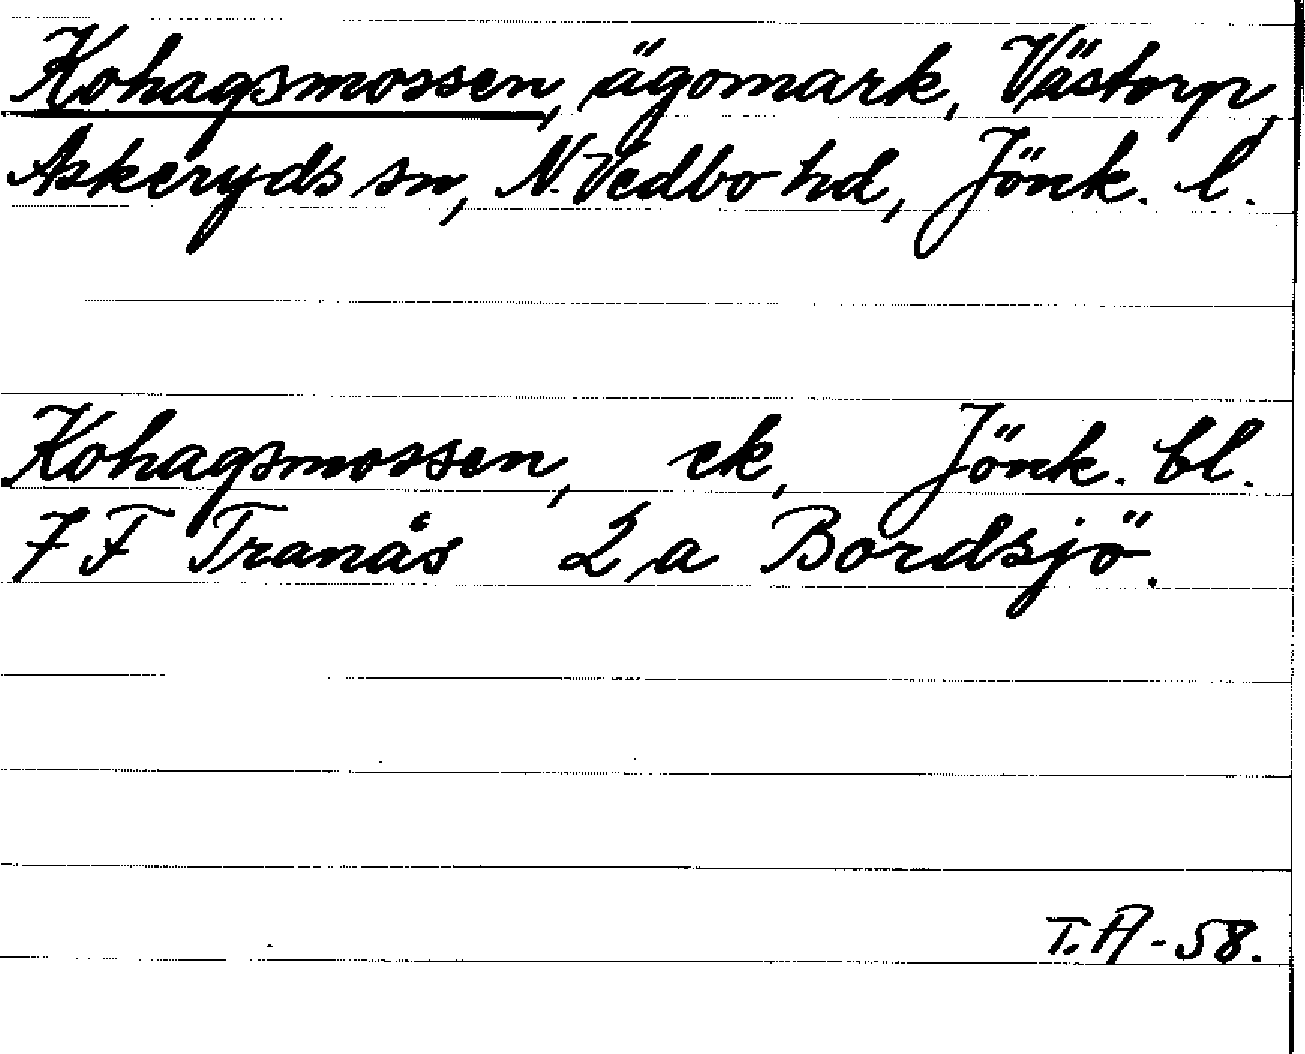 Kohagsmossen, ägomark, Västorp,
Askeryds sn, N. Vedbo hd, Jönk. l.
Kohagsmossen, ek, Jönk. bl.
7 F Tranås 2 a Bordsjö.
T. A - 58.